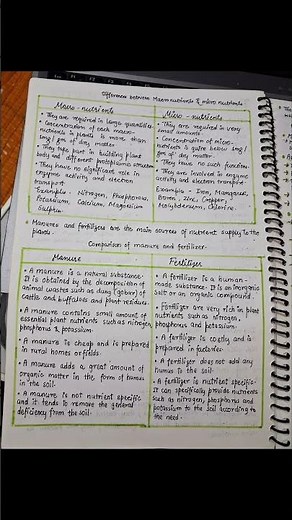 Difference between Macro nutrients & micro nutrients
Macro-nutrients
• They are required in large quantities.
• Concentration of each macro-
nutrients in plants is more than
1mg/gm of dry matter.
• They take part in building plant
body and different protoplasmic structure
• They have no significant role in
enzymes activity and electron
transport
Example - Nitrogen, Phosphorous,
Potassium, Calcium, Magnesium
Sulphur.
Micro-nutrients
• They are required in very
small amounts.
• Concentration of micro-
nutrients is quite below 1mg/
gm of dry matter.
• They have no such function.
• They are involved in enzymes
activity and electron transport.
Example - Iron, Manganese,
Boron, Zinc, Copper,
Molybdenum, Chlorine.
• Manures and fertilizers are the main sources of nutrient supply to the
plants.
Comparison of manure and fertilizer.
Manure
• A manure is a natural substance.
It is obtained by the decomposition of
animal wastes such as dung (gobar) of
cattle and buffaloes and plant residues.
• A manure contains small amount of
essential plant nutrients such as nitrogen,
phosphorus & potassium.
• A manure is cheap and is prepared
in rural homes or fields.
• A manure adds a great amount of
organic matter in the form of humus
in the soil.
• A manure is not nutrient specific
and it tends to remove the general
deficiency from the soil.
Fertilizer
• A fertilizer is a human-
made substance. It is an inorganic
salt or an organic compound.
• Fertilizer are very rich in plant
nutrients such as nitrogen,
phosphorus and potassium.
• A fertilizer is costly and is
prepared in factories.
• A fertilizer does not add any
humus to the soil.
• A fertilizer is nutrient specific.
It can specifically provide nutrients
such as nitrogen, phosphorus and
potassium to the soil according to
the need.